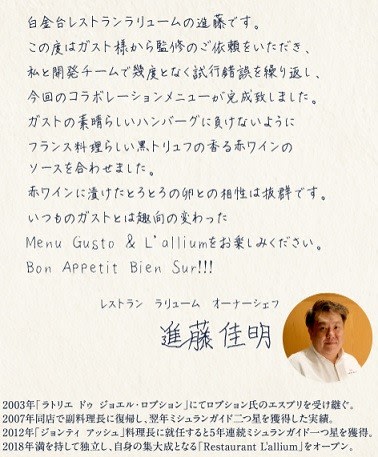 白金台レストランラリュームの進藤です。
この度はガスト様から監修のご依頼をいただき、
私と開発チームで幾度となく試行錯誤を繰り返し、
今回のコラボレーションメニューが完成致しました。
ガストの素晴らしいハンバーグに負けないように
フランス料理らしい黒トリュフの香る赤ワインの
ソースを合わせました。
赤ワインに漬けたとろとろの卵との相性は抜群です。
いつものガストとは趣向の変わった
Menu Gusto & L'alliumをお楽しみください。
Bon Appetit Bien Sur!!!
レストラン ラリューム オーナーシェフ
進藤佳明
2003年「ラトリエ ドゥ ジョエル・ロブション」にてロブション氏のエスプリを受け継ぐ。
2007年同店で副料理長に復帰し、翌年ミシュランガイド二つ星を獲得した実績。
2012年「ジョンティ アッシュ」料理長に就任すると5年連続ミシュランガイド一つ星を獲得。
2018年満を持して独立し、自身の集大成となる「Restaurant L'allium」をオープン。